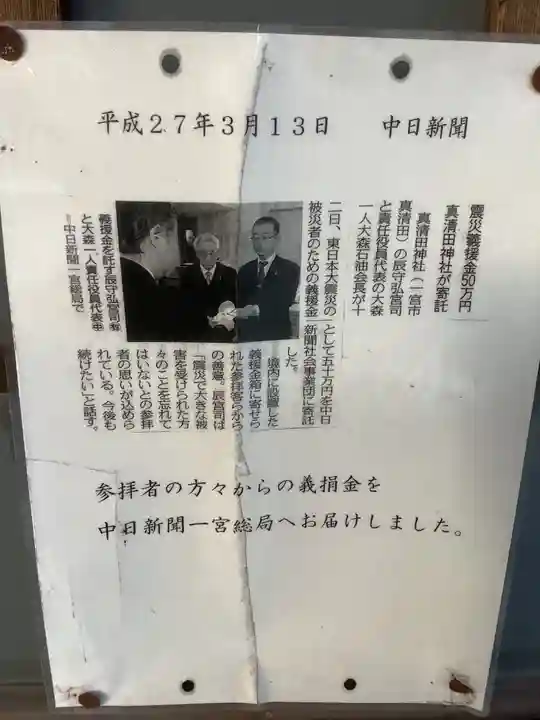 平成27年3月13日　中日新聞
震災義援金50万円
真清田神社が寄託
真清田神社（一宮市
真清田）の辰守弘宮司
と責任役員代表の大森
一人大森石油会長が十
二日、東日本大震災の
被災者のための義援金
として五十万円を中日
新聞社会事業団に寄託
した。
境内に設置した
義援金箱に寄せら
れた参拝客らから
の善意。辰宮司は
「震災で大きな被
害を受けられた方
々のことを忘れて
はいないとの参拝
者の思いが込めら
れている。今後も
続けたい」と話す。
義援金を託す辰守弘宮司㊨
と大森一人責任役員代表㊥
＝中日新聞一宮総局で
参拝者の方々からの義捐金を
中日新聞一宮総局へお届けしました。